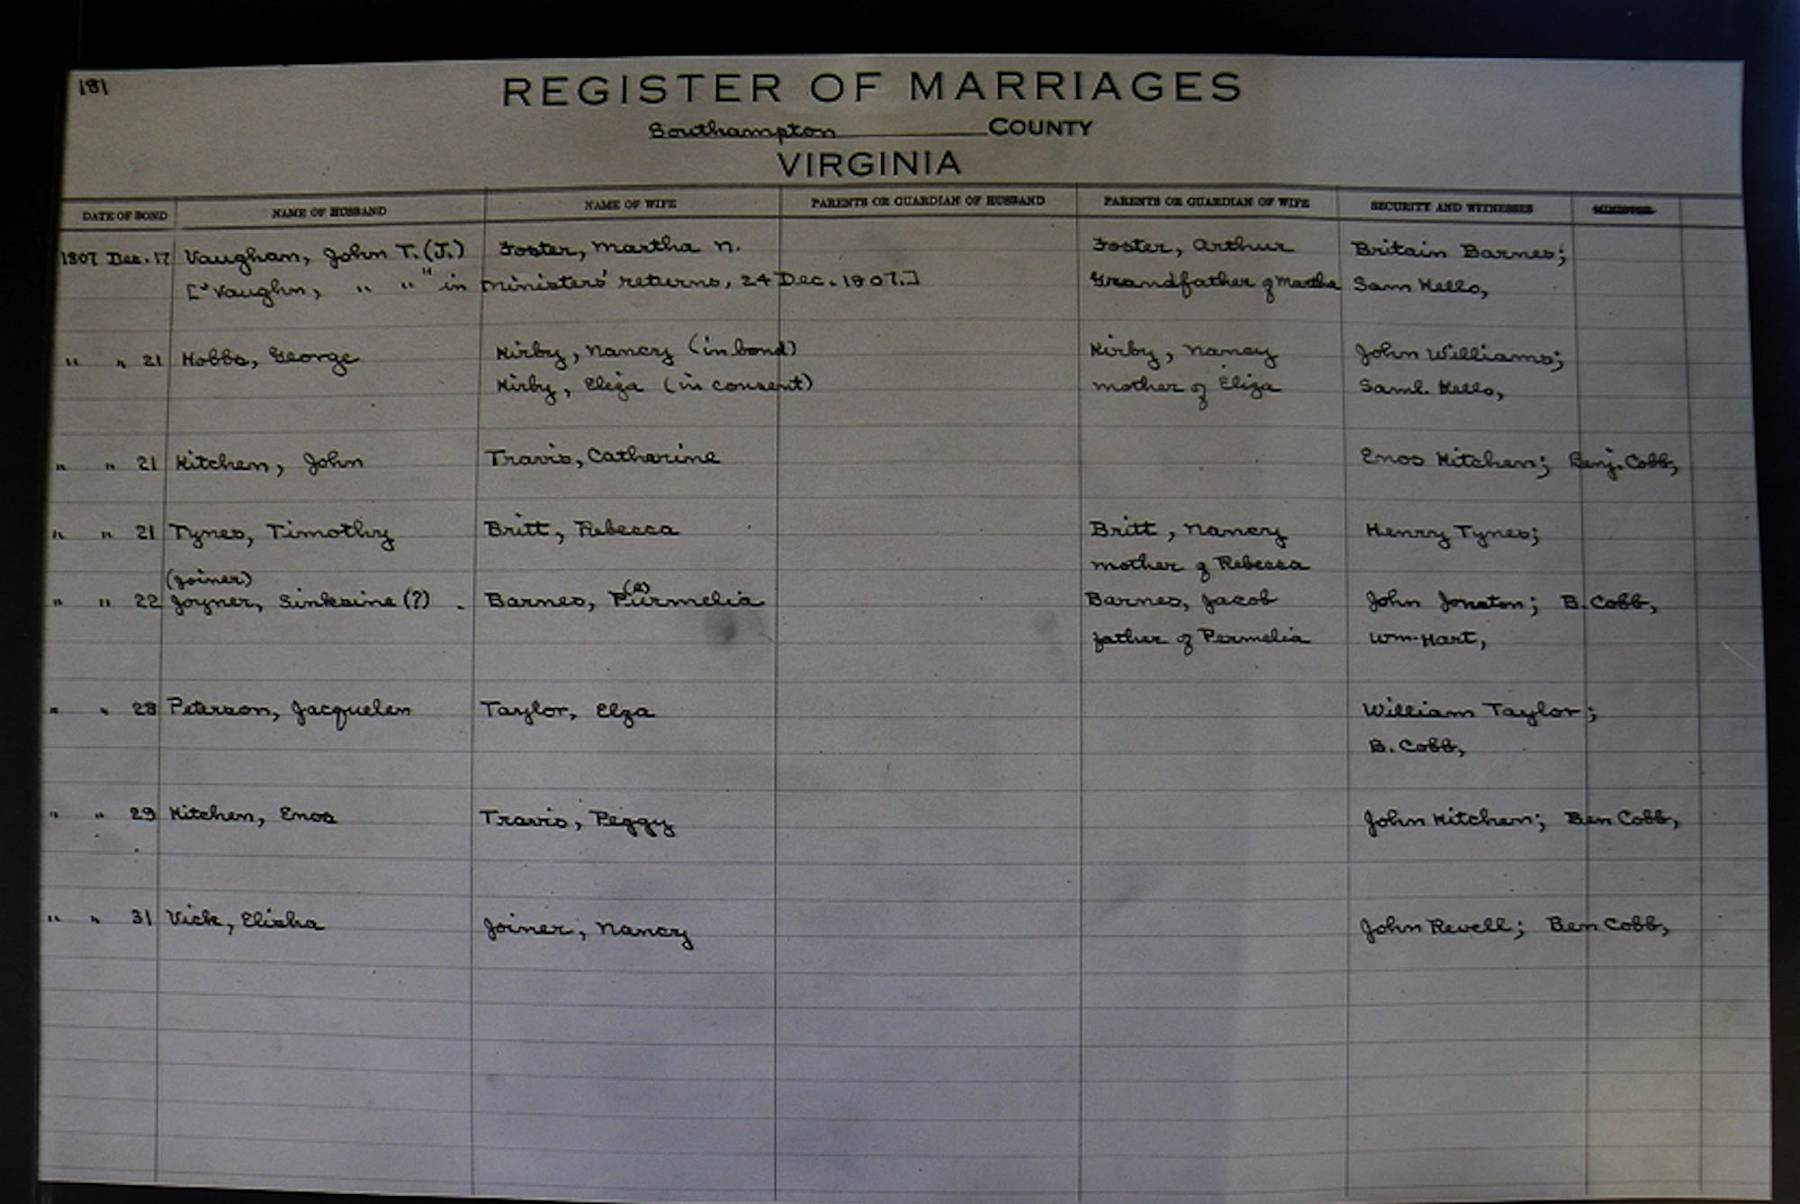 181
REGISTER OF MARRIAGES
Southampton COUNTY
VIRGINIA
DATE OF BOND NAME OF HUSBAND NAME OF WIFE PARENTS OR GUARDIAN OF HUSBAND PARENTS OR GUARDIAN OF WIFE SECURITY AND WITNESSES MINISTER
1807 Dec. 17 Vaughan, John T. (J.) Foster, Martha N. Foster, Arthur Britain Barnes;
["Vaughn, " " " in ministers' returns, 24 Dec. 1807.] Grandfather of Martha Sam Kello,
" " 21 Hobbs, George Kirby, Nancy (in bond) Kirby, Nancy John Williams;
Kirby, Eliza (in consent) mother of Eliza Saml. Kello,
" " 21 Kitchen, John Travis, Catherine Enos Kitchen; Benj. Cobb,
" " 21 Tynes, Timothy Britt, Rebecca Britt, Nancy Henry Tynes;
mother of Rebecca
(Joiner) (e)
" " 22 Joyner, Sinksine (?) . Barnes, Purmelia Barnes, Jacob John Jonston; B. Cobb,
father of Permelia Wm. Hart,
" " 28 Peterson, Jacquelen Taylor, Elza William Taylor;
B. Cobb,
" " 29 Kitchen, Enos Travis, Peggy John Kitchen; Ben Cobb,
" " 31 Vick, Elisha Joiner, Nancy John Revell; Ben Cobb,